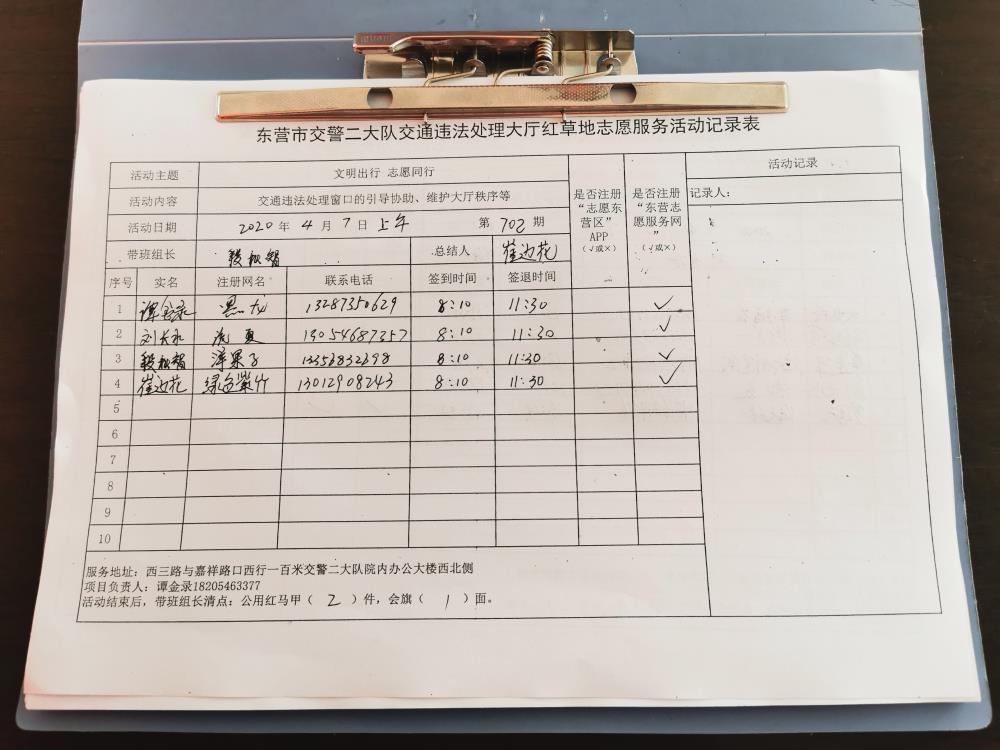 东营市交警二大队交通违法处理大厅红草地志愿服务活动记录表
活动主题 文明出行 志愿同行
活动内容 交通违法处理窗口的引导协助、维护大厅秩序等
活动日期 2020 年 4 月 7 日 上午 第 702 期
带班组长 段松智 总结人 崔边花
序号 实名 注册网名 联系电话 签到时间 签退时间
是否注册“志愿东营区”APP（√或×）
是否注册“东营志愿服务网”（√或×）
活动记录
记录人：
1 谭金录 黑 13287350629 8:10 11:30 ✓
2 刘长永 流夏 13054687357 8:10 11:30 ✓
3 段松智 洋果子 13356832398 8:10 11:30 ✓
4 崔边花 绿色紫竹 13012908243 8:10 11:30 ✓
5
6
7
8
9
10
服务地址：西三路与嘉祥路口西行一百米交警二大队院内办公大楼西北侧
项目负责人：谭金录18205463377
活动结束后，带班组长清点：公用红马甲（ 2 ）件，会旗（ 1 ）面。